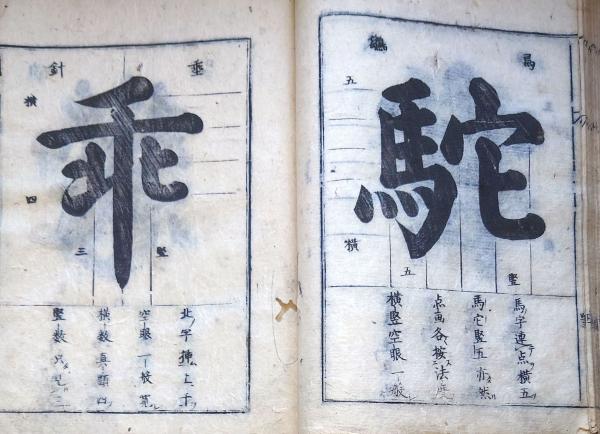 駝
五
横
五
竪
馬字連点横五
馬它竪五亦然
点画各按法度
横竪空眼一般
乖
垂針
横
四
三
竪
北字挿上千
空眼一般第
横数真頭四
竪数只見三